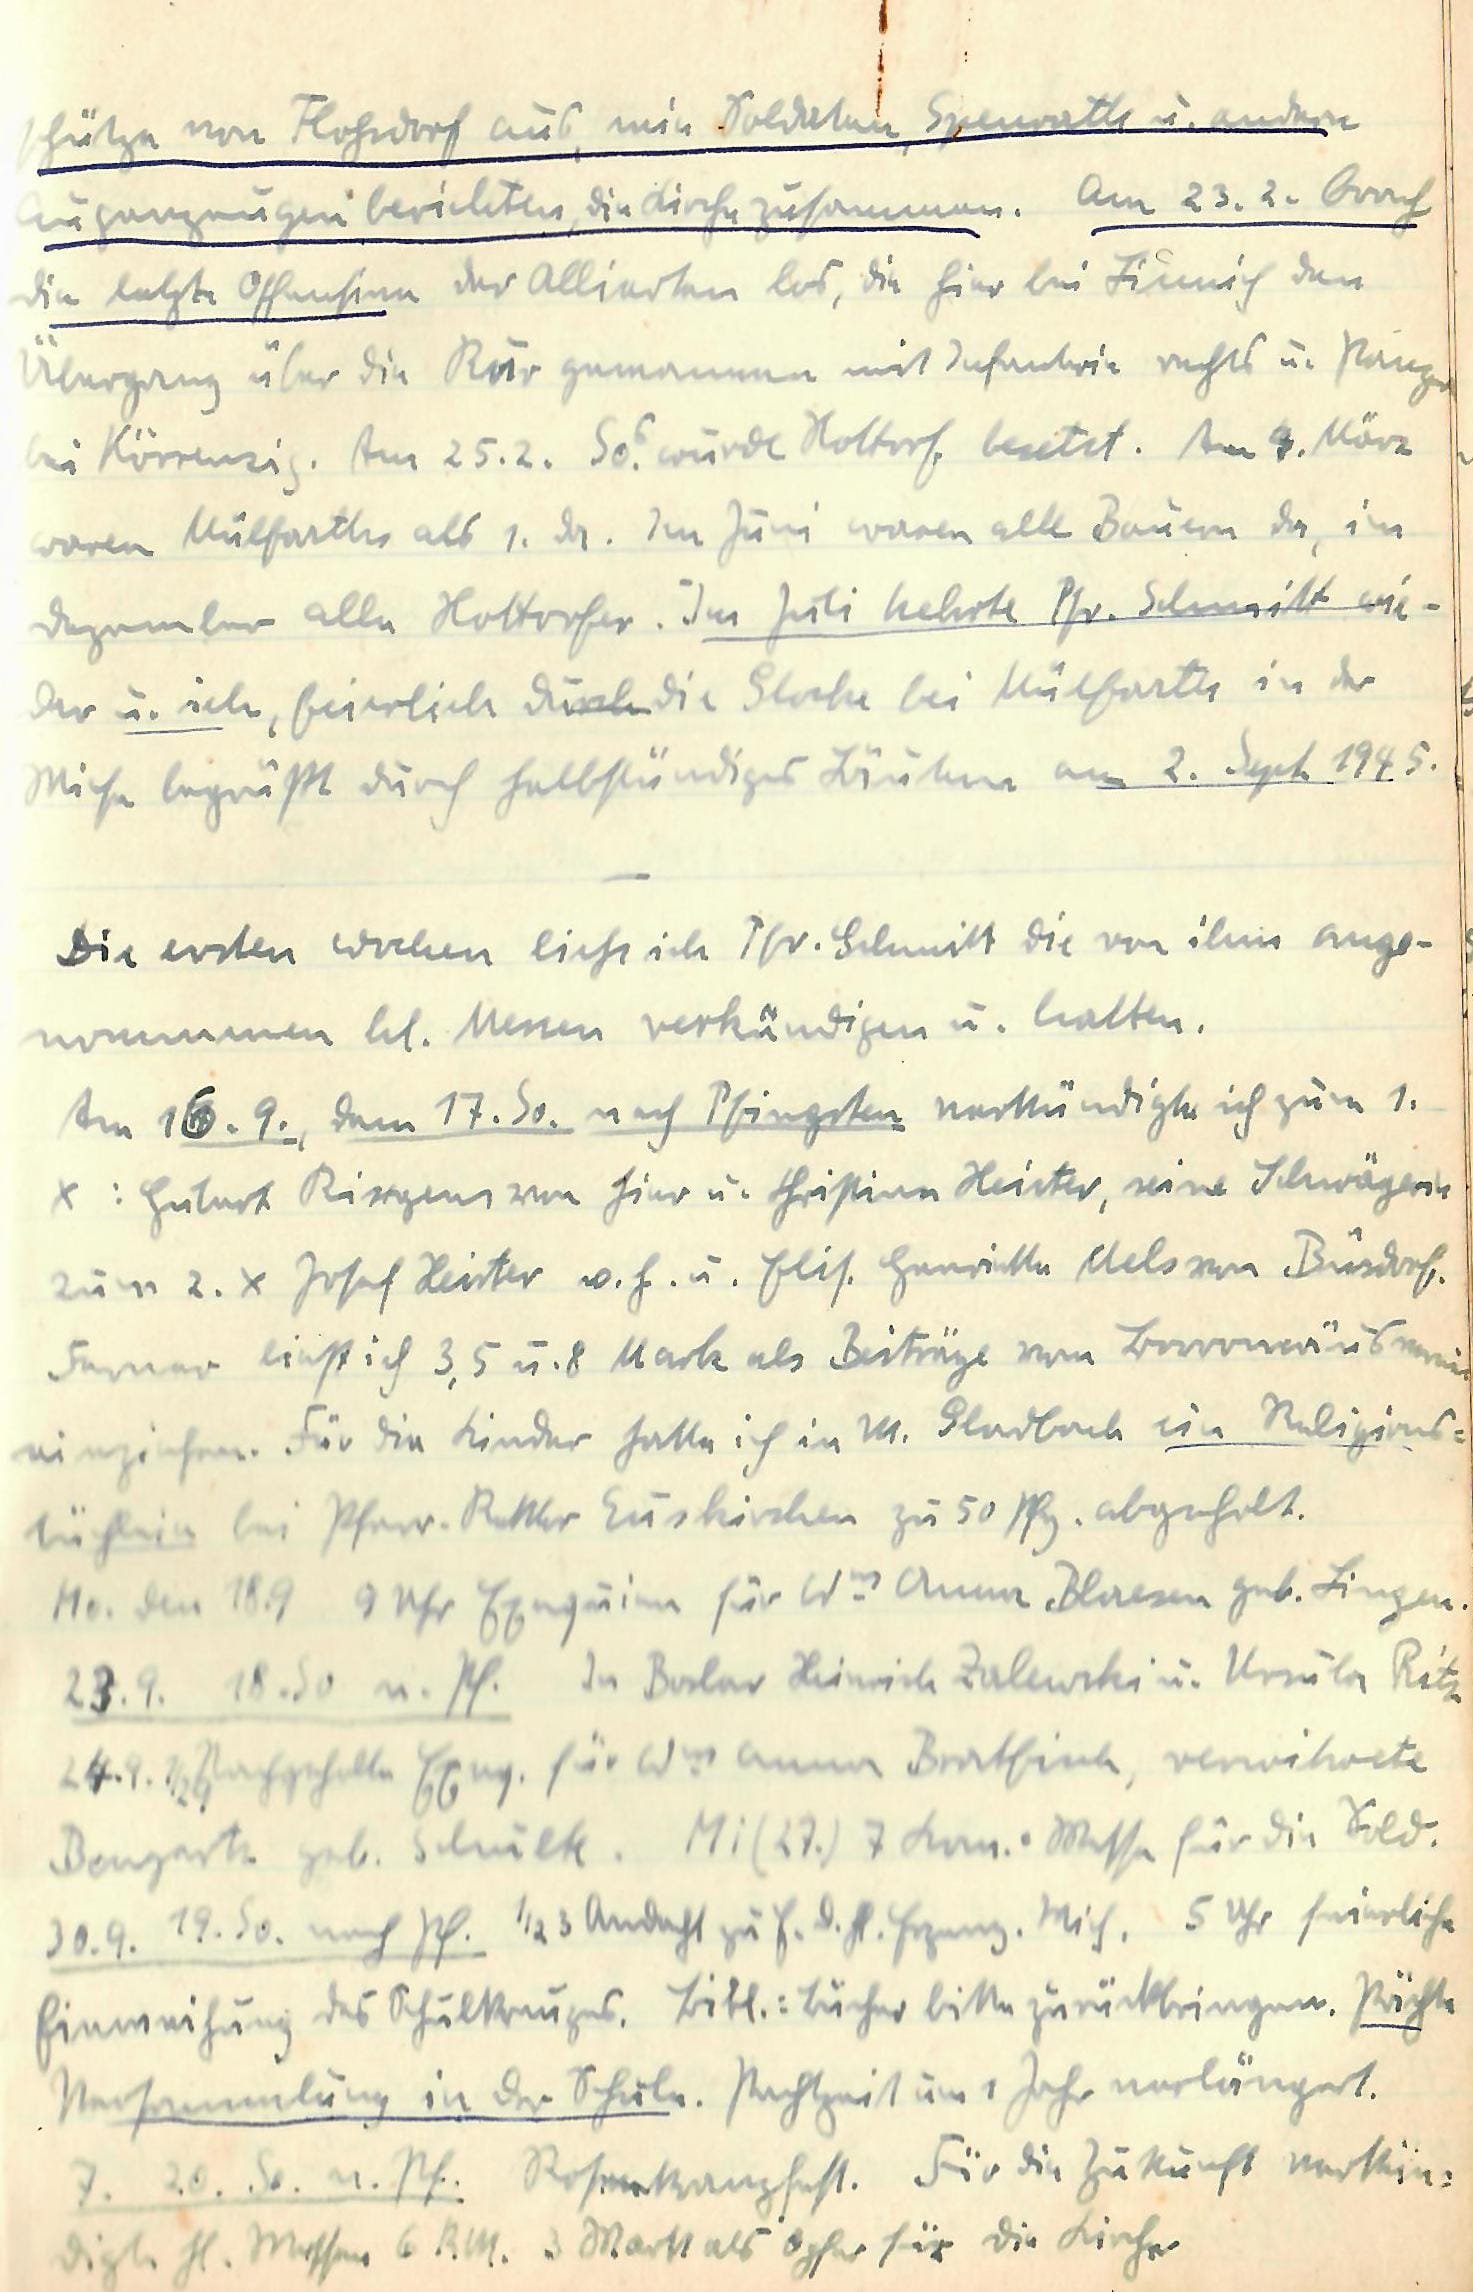 schütze von Flohsdorf aus, wie Soldaten, Spenrath u. andere
Augenzeugen berichten, die Kirche zusammen. Am 23. 2. brach
die letzte Offensive der Alliierten los, die hier bei Linnich den
Übergang über die Rur gewannen mit Infanterie rechts u. Panzer
bei Körrenzig. Am 25. 2. So. wurde Hottorf besetzt. Am 4. März
waren Mülfarths als 1. da. Im Juni waren alle Bauern da, im
Dezember alle Hottorfer. Im Juli kehrte Pfr. Schmitt wie-
der u. ich, feierlich durch die Glocke bei Mülfarth in der
Wiese begrüßt durch halbstündiges Läuten am 2. Sept. 1945.
Die ersten Wochen ließ ich Pfr. Schmitt die von ihm ange-
nommenen hl. Messen verkündigen u. halten.
Am 16. 9., dem 17. So. nach Pfingsten verkündigte ich zum 1.
x : Hubert von hier u. Christine Heister, seine Schwägerin
zum 2. x Josef Heister v. h. u. Elis. Henriette Mels von Büsdorf.
Ferner ließ ich 3,5 u. 8 Mark als Beiträge vom Borromäusverein
einziehen. Für die Kinder hatte ich in M. Gladbach ein Religions-
büchlein bei Pfarr-Rektor Euskirchen zu 50 Pfg. abgeholt.
Mo. den 18.9 9 Uhr Exequien für Wwe Anna Blaesen geb. Lingen.
23. 9. 18. So n. Pf. In Boslar Heinrich Zalewski u. Ursula Ritz
24. 9. 1/2 9 Nachgeholte Exeq. für Wwe Anna Bratfisch, verwitwete
Bongartz geb. Schulte. Mi (27.) 7 Kom.-Messe für die Sold.
30. 9. 19. So. nach Pf. 1/2 3 Andacht zu E. d. hl. Erzeng. Mich. 5 Uhr feierliche
Einweihung des Schulkreuzes. Bibl.-Bücher bitte zurückbringen. Pächter
Versammlung in der Schule. Pachtzeit um 1 Jahr verlängert.
7. 20. So. n. Pf. Rosenkranzfest. Für die Zukunft verkün-
digte hl. Messen 6 RM. 3 Mark als Opfer für die Kirche